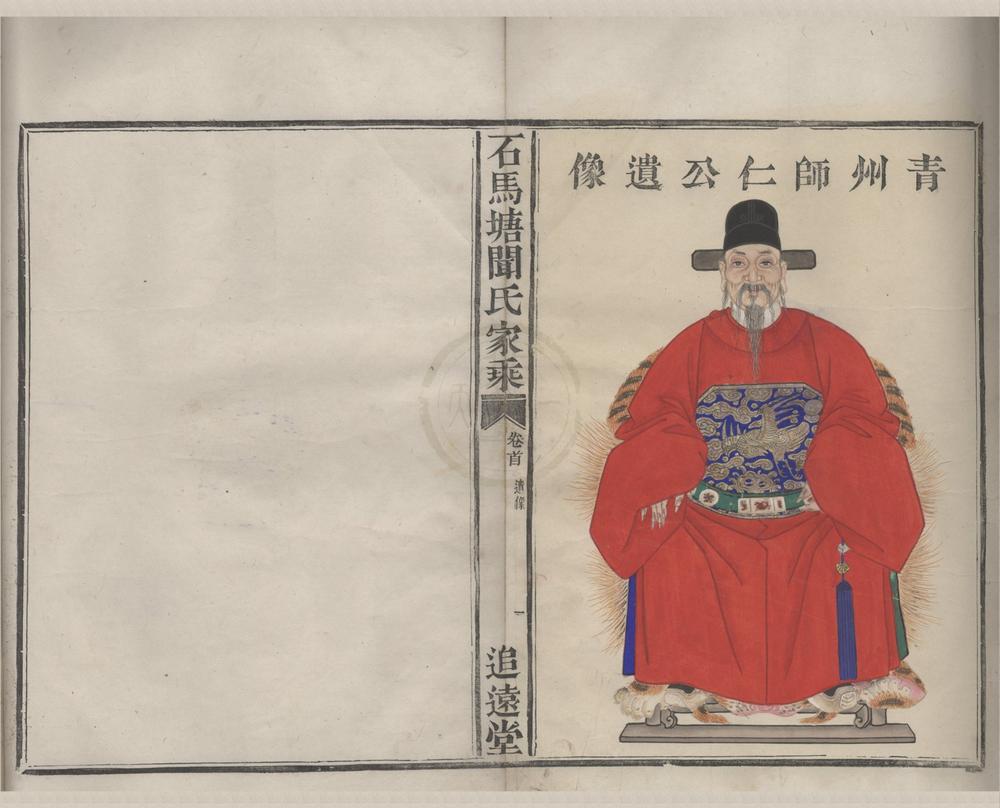 青州師仁公遺像
石馬塘聞氏家乘
卷首
遺像
一
追遠堂